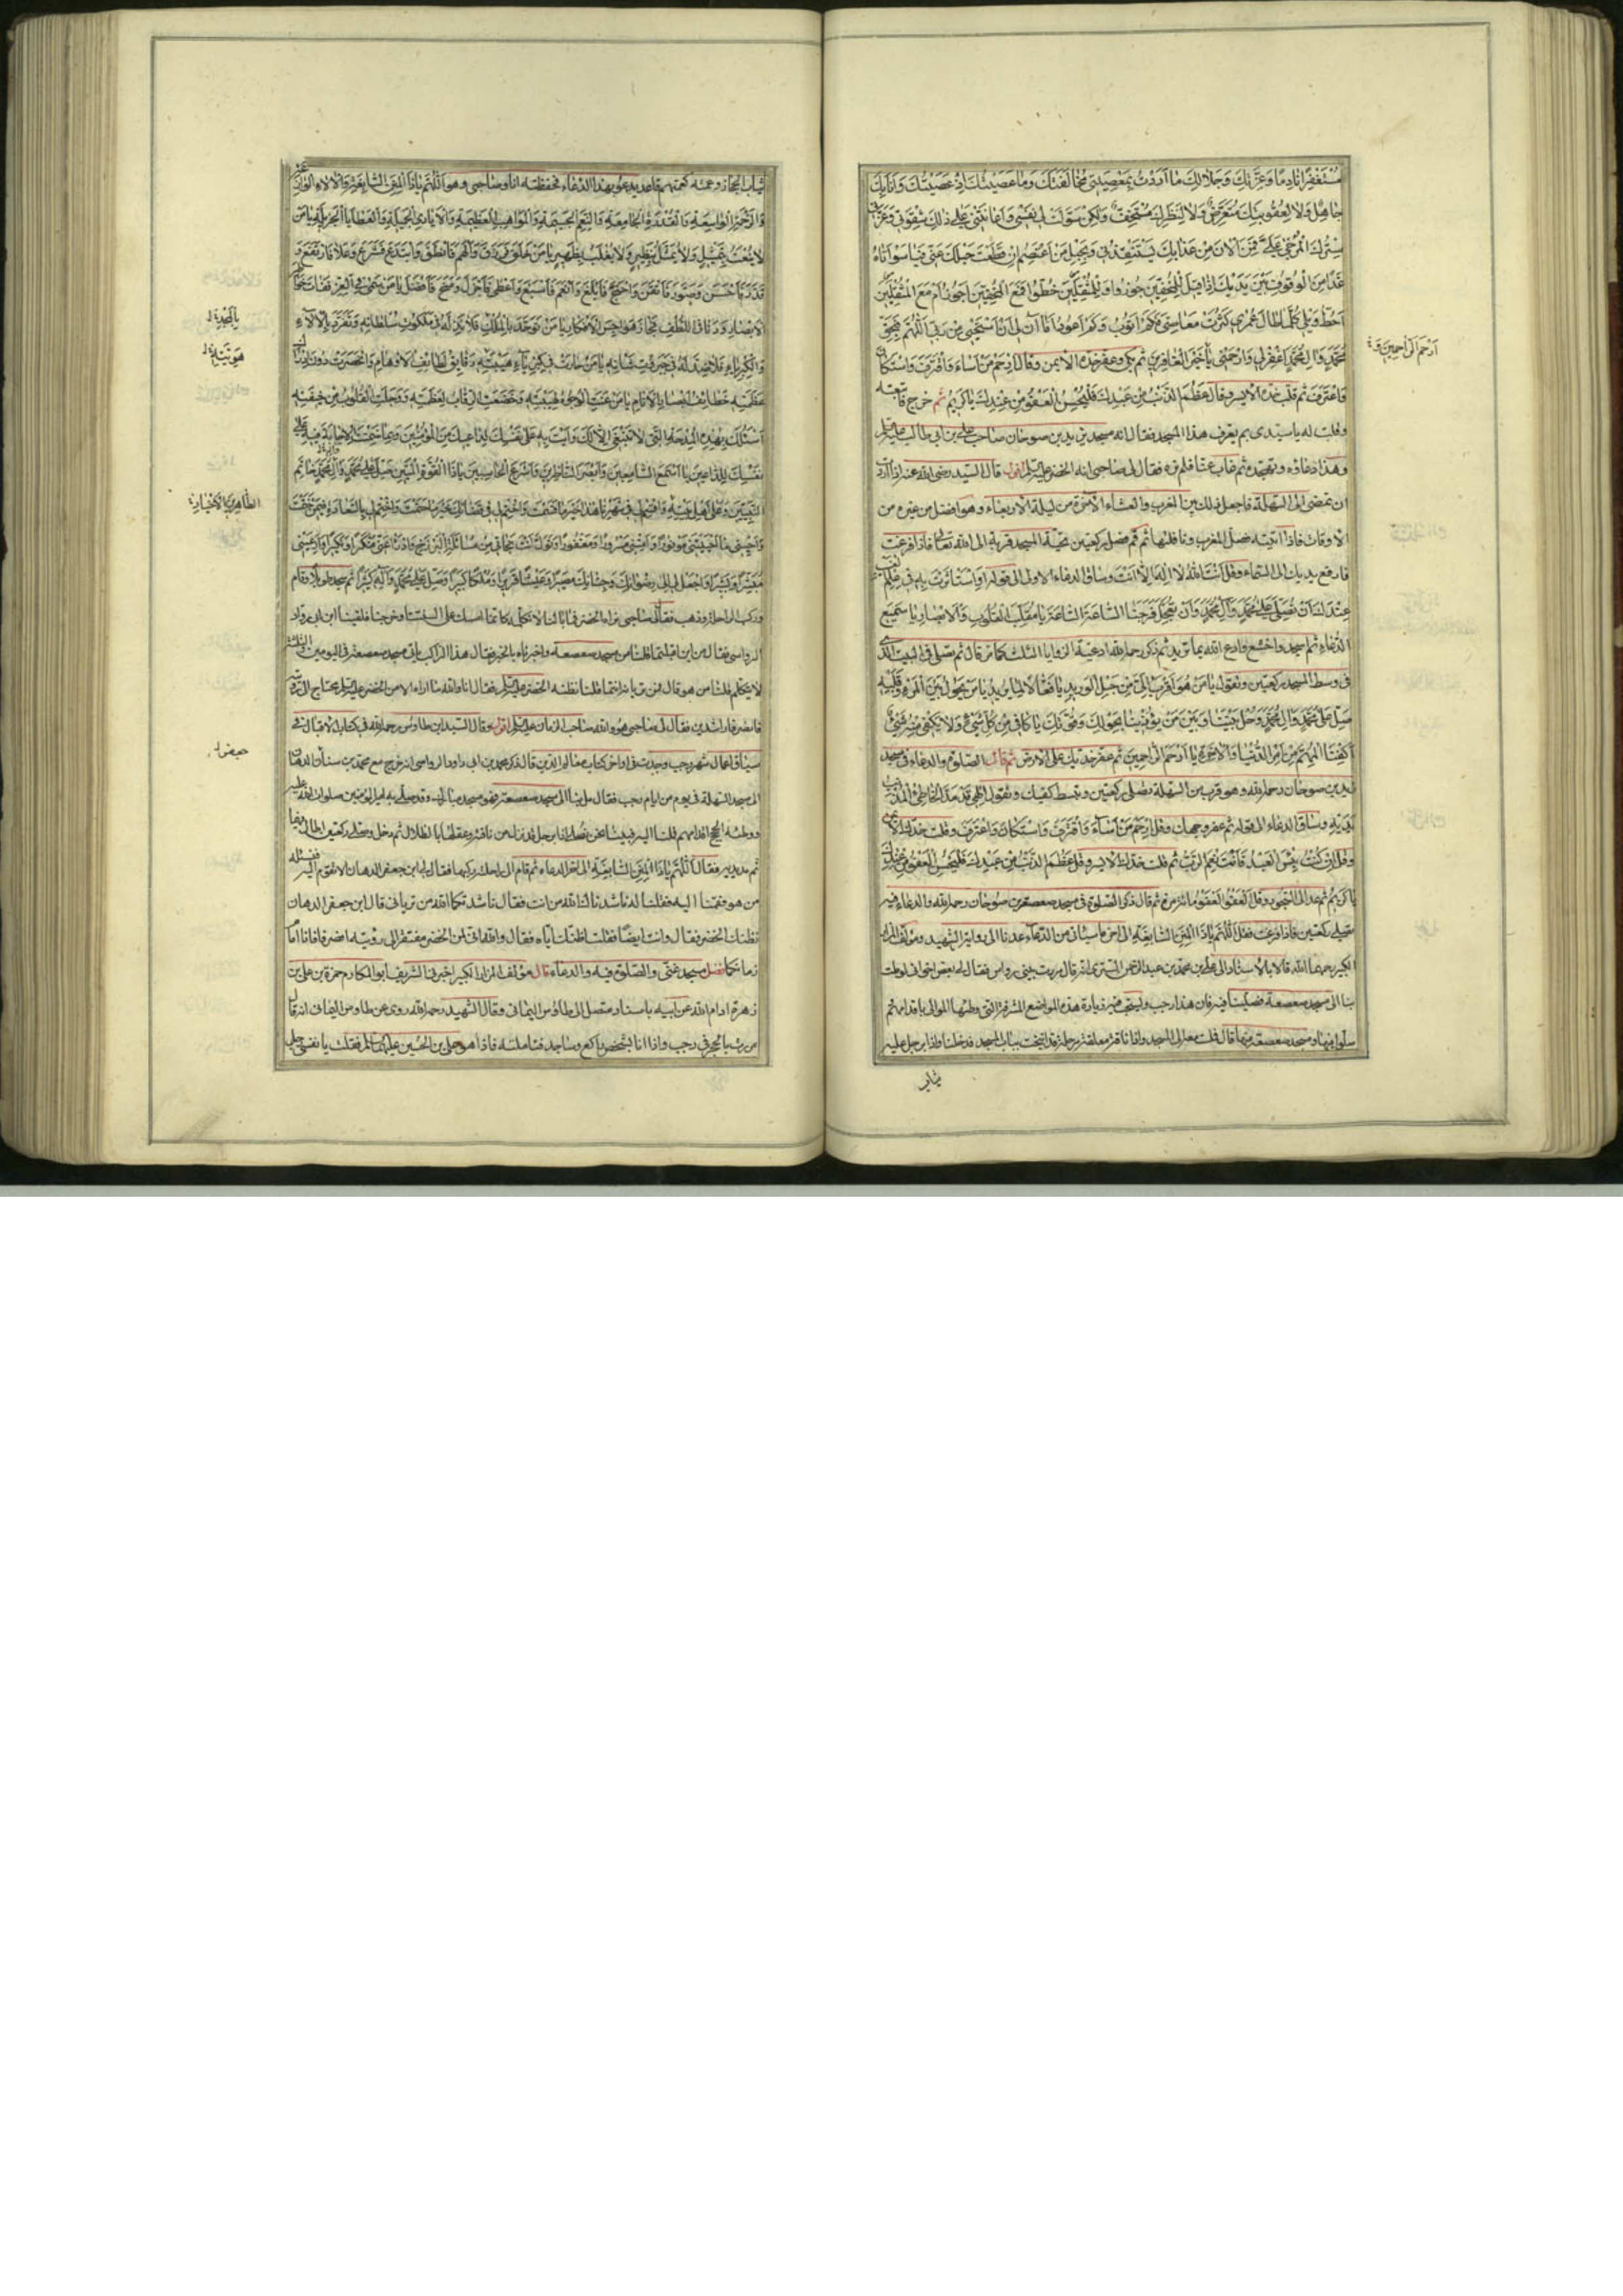 مُسْتَغْفِرًا نَادِمًا وَعِزَّتِكَ وَجَلَالِكَ مَا أَرَدْتُ بِمَعْصِيَتِي مُخَالَفَتَكَ وَمَا عَصَيْتُكَ إِذْ عَصَيْتُكَ وَأَنَا بِكَ
جَاهِلٌ وَلَا لِعُقُوبَتِكَ مُتَعَرِّضٌ وَلَا لِنَظَرِكَ مُسْتَخِفٌّ وَلَكِنْ سَوَّلَتْ لِي نَفْسِي وَأَعَانَتْنِي عَلَى ذَلِكَ شِقْوَتِي وَغَرَّنِي
سِتْرُكَ الْمُرْخَى عَلَيَّ فَمِنَ الْآنَ مِنْ عَذَابِكَ يَسْتَنْقِذُنِي وَبِحَبْلِ مَنْ أَعْتَصِمُ إِنْ قَطَعْتَ حَبْلَكَ عَنِّي فَيَا سَوْأَتَاهُ
غَدًا مِنَ الْوُقُوفِ بَيْنَ يَدَيْكَ إِذَا قِيلَ لِلْمُخِفِّينَ جُوزُوا وَلِلْمُثْقِلِينَ حُطُّوا أَفَمَعَ الْمُخِفِّينَ أَجُوزُ أَمْ مَعَ الْمُثْقِلِينَ
أَحُطُّ وَيْلِي كُلَّمَا طَالَ عُمُرِي كَثُرَتْ مَعَاصِيَّ فَكَمْ أَتُوبُ وَكَمْ أَعُودُ أَمَا آنَ لِي أَنْ أَسْتَحْيِيَ مِنْ رَبِّي اللَّهُمَّ فَبِحَقِّ
مُحَمَّدٍ وَآلِ مُحَمَّدٍ اغْفِرْ لِي وَارْحَمْنِي يَا خَيْرَ الْغَافِرِينَ ثم بكى وعفر خده الأيمن وقال ارْحَمْ مَنْ أَسَاءَ وَاقْتَرَفَ وَاسْتَكَانَ
وَاعْتَرَفَ ثم قلب خده الأيسر وقال عَظُمَ الذَّنْبُ مِنْ عَبْدِكَ فَلْيَحْسُنِ الْعَفْوُ مِنْ عِنْدِكَ يَا كَرِيمُ ثم خرج فاتبعته
وقلت له يا سيدي بم يعرف هذا المسجد فقال انه مسجد زيد بن صوحان صاحب علي بن ابي طالب عليه السلم
وهذا دعاؤه وتهجده ثم غاب عنا فلم نره فقال لي صاحبي انه الخضر عليه السلم اقول قال السيد رضي الله عنه اذا اردت
ان تمضي الى السهلة فاجعل ذلك بين المغرب والعشاء الآخرة من ليلة الاربعاء وهو افضل من غيره من
الاوقات فاذا اتيته فصل المغرب ونافلتها ثم قم فصل ركعتين تحية المسجد قربة الى الله تعالى فاذا فرغت
فارفع يديك الى السماء وقل أنت الله لا إله إلا أنت وساق الدعاء الاول الى قوله أو استأثرت به في علم الغيب
عندك أن تصلي على محمد وآل محمد وأن تعجل فرجنا الساعة الساعة يا مقلب القلوب والأبصار يا سميع
الدعاء ثم اسجد واخشع وادع الله بما تريد ثم ذكر رحمه الله ادعية الزوايا الثلث كما مر قال ثم تصلي في البيت الذي
في وسط المسجد ركعتين وتقول يا من هو أقرب إلي من حبل الوريد يا فعالا لما يريد يا من يحول بين المرء وقلبه
صل على محمد وآل محمد وحل بيننا وبين من يؤذينا بحولك وقوتك يا كافي من كل شيء ولا يكفي منه شيء
اكفنا المهم من أمر الدنيا والآخرة يا أرحم الراحمين ثم عفر خديك على الأرض ثم قال الصلوة والدعاء في مسجد
زيد بن صوحان رحمه الله وهو قريب من السهلة تصلي ركعتين وتبسط كفيك وتقول إلهي قد مد الخاطئ المذنب
يديه وساق الدعاء الى قوله ثم عفر وجهك وقل ارحم من أساء واقترف واستكان واعترف وقلب خدك الأيمن
وقل إن كنت بئس العبد فأنت نعم الرب ثم قلب خدك الأيسر وقل عظم الذنب من عبدك فليحسن العفو من عندك
يا كريم ثم عد الى السجود وقل العفو العفو مائة مرة ثم قال ذكر الصلوة في مسجد صعصعة بن صوحان رحمه الله والدعاء فيه
تصلي ركعتين فاذا فرغت فقل اللهم يا ذا المنن السابغة الى آخر ما سيأتي من الدعاء عدنا الى رواية الشهيد ومؤلف المزار
الكبير رحمهما الله قالا بالاسناد الى علي بن محمد بن عبد الرحمن التستري انه قال مررت ببني رواس فقال لي بعض اخواني لو ملت
بنا الى مسجد صعصعة فصلينا فيه فان هذا رجب ويستحب فيه زيارة هذه المواضع المشرفة التي وطئها الموالي باقدامهم
صلوا فيها ومسجد صعصعة منها قال فملت معه الى المسجد واذا ناقة معقلة مرحلة قد انيخت بباب المسجد فدخلنا واذا برجل عليه
ثياب
أرحم الراحمين
ثياب الحجاز وعمته كعمتهم قاعد يدعو بهذا الدعاء فحفظته انا وصاحبي وهو اللهم يا ذا المنن السابغة والآلاء الوازعة
والرحمة الواسعة والقدرة الجامعة والنعم الجسيمة والمواهب العظيمة والأيادي الجميلة والعطايا الجزيلة يا من
لا ينعت بتمثيل ولا يمثل بنظير ولا يغلب بظهير يا من خلق فرزق وألهم فأنطق وابتدع فشرع وعلا فارتفع و
قدر فأحسن وصور فأتقن واحتج فأبلغ وأنعم فأسبغ وأعطى فأجزل ومنح فأفضل يا من سما في العز ففات خواطر
الأبصار ودنا في اللطف فجاز هواجس الأفكار يا من توحد بالملك فلا ند له في ملكوت سلطانه وتفرد بالآلاء
والكبرياء فلا ضد له في جبروت شأنه يا من حارت في كبرياء هيبته دقائق لطائف الأوهام وانحسرت دون إدراك
عظمته خطائف أبصار الأنام يا من عنت الوجوه لهيبته وخضعت الرقاب لعظمته ووجلت القلوب من خيفته
أسئلك بهذه المدحة التي لا تنبغي إلا لك وبما وأيت به على نفسك لداعيك من المؤمنين وبما ضمنت الإجابة فيه على
نفسك للداعين يا أسمع السامعين وأبصر الناظرين وأسرع الحاسبين يا ذا القوة المتين صل على محمد وآل محمد خاتم
النبيين وعلى أهل بيته واقسم لي في شهرنا هذا خير ما قسمت واختم لي في قضائك خير ما حتمت واختم لي بالسعادة فيمن ختمت
وأحيني ما أحييتني موفورا وأمتني مسرورا ومغفورا وتول أنت نجاتي من مسائلة البرزخ وادرأ عني منكرا ونكيرا وأر عيني
مبشرا وبشيرا واجعل لي إلى رضوانك وجنانك مصيرا وعيشا قريرا وملكا كبيرا وصل على محمد وآله كثيرا ثم سجد طويلا وقام
وركب الراحلة وذهب فقال لي صاحبي نراه الخضر فما بالنا لا نكلمه كانما امسك على السنتنا وخرجنا فلقينا ابن ابي رواد
الرواسي فقال من اين اقبلتما قلنا من مسجد صعصعة واخبرناه بالخبر فقال هذا الراكب يأتي مسجد صعصعة في اليومين والثلثة
لا يتكلم قلنا من هو قال فمن تريانه انتما قلنا نظنه الخضر عليه السلم فقال انا والله ما اراه الا من الخضر عليه السلم محتاج الى رؤيته
فانصرفا راشدين فقال لي صاحبي هو والله صاحب الزمان عليه السلم اقول وقال السيد ابن طاوس رحمه الله في كتاب الاقبال في
سياق اعمال شهر رجب وجدت في اواخر كتاب معالم الدين قال ذكر محمد بن ابي داود الرواسي انه خرج مع محمد بن سنان الدهان
الى مسجد السهلة في يوم من ايام رجب فقال مل بنا الى مسجد صعصعة فهو مسجد مبارك وقد صلى به امير المؤمنين صلوات الله عليه
ووطئه الحجج اقدامهم فملنا اليه فبينا نحن نصلي اذا برجل قد نزل من ناقته وعقلها بالظلال ثم دخل وصلى ركعتين اطال فيهما
ثم مد يديه فقال اللهم يا ذا المنن السابغة الى آخر الدعاء ثم قام الى راحلته وركبها فقال لي ابن جعفر الدهان الا نقوم اليه فنسئله
من هو فقمنا اليه فقلنا له ناشدناك الله من انت فقال ناشدتكما الله من ترياني قال ابن جعفر الدهان
نظنك الخضر فقال وانت ايضا فقلت اظنك اياه فقال والله اني لمن الخضر مفتقر الى رؤيته انصرفا فانا امام
زمانكما فضل مسجد غني والصلوة فيه والدعاء قال مؤلف المزار الكبير اخبرني الشريف ابو المكارم حمزة بن علي بن
زهرة ادام الله عن ابيه باسناد متصل الى طاوس اليماني وقال الشهيد رحمه الله روي عن طاوس اليماني انه قال
مررت بالحجر في رجب واذا انا بشخص راكع وساجد فتأملته فاذا هو علي بن الحسين عليهما السلم فقلت يا نفسي رجل
بالمجد
هويته
الطاهرين الأخيار
جعفر